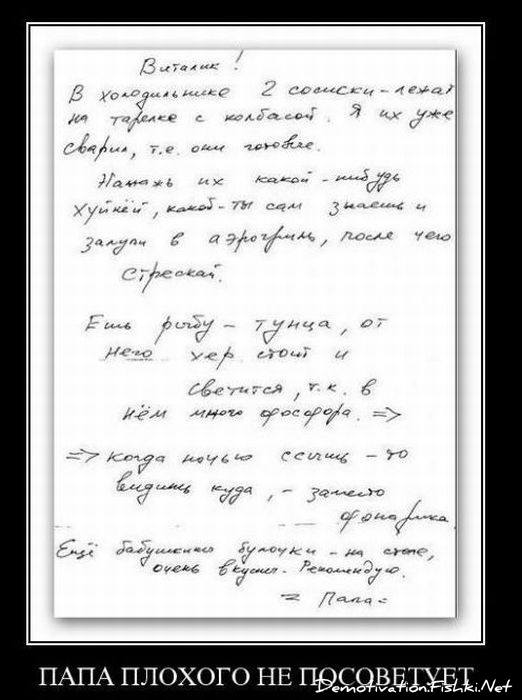 Виталик!
В холодильнике 2 сосиски - лежат
на тарелке с колбасой. Я их уже
сварил, т.е. они готовые.
Намажь их какой-нибудь
хуйнёй, какой - ты сам знаешь и
залупи в аэрогриль, после чего
стрескай.
Ешь рыбу - тунца, от
него хер стоит и
светится, т.к. в
нём много фосфора. =>
=> когда ночью ссышь - то
видишь куда, - заместо
фонарика.
Ещё бабушкины булочки - на столе,
очень вкусн. Рекомендую.
= Папа =
ПАПА ПЛОХОГО НЕ ПОСОВЕТУЕТ
Demotivation.Fishki.Net